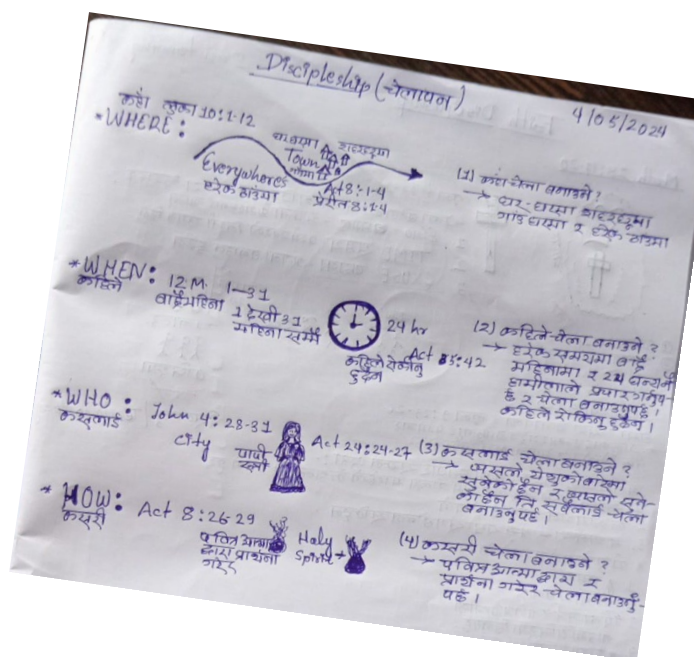 Discipleship (चेलापन)
4/05/2024
कहाँ लुका 10:1-12
*WHERE:
शहरहरुमा
Town
Everywheres
हरेक ठाउँमा
Act 8:1-4
प्रेरित 8:1-4
(1) कहाँ चेला बनाउने ?
→ घर-घरमा शहरहरुमा
गाउँ घरमा र हरेक ठाउँमा
*WHEN:
कहिले
12 M. 1-31
बाह्रै महिना 1 देखी 31
महिना सम्मै
24 hr
Act 5:42
कहिले रोकीनु
हुदैन
(2) कहिले चेला बनाउने ?
→ हरेक समयमा बाह्रै
महिनामा र 24 घन्टानै
हामीलाले प्रचार गर्नुप-
र्छ र चेला बनाउनुपर्छ।
कहिले रोकिनु हुदैन।
*WHO:
कसलाई
John 4:28-31
City
पापी
स्त्री
Act 24:24-27
(3) कसलाई चेला बनाउने ?
→ येशुको बारेमा
चेला
बनाउनुपर्छ।
* HOW:
कसरी
Act 8:26-29
पवित्र आत्मा
द्वारा प्रार्थना
गरेर
Holy
Spirit
(4) कसरी चेला बनाउने ?
→ पवित्र आत्मा द्वारा र
प्रार्थना गरेर चेला बनाउनु-
पर्छ।